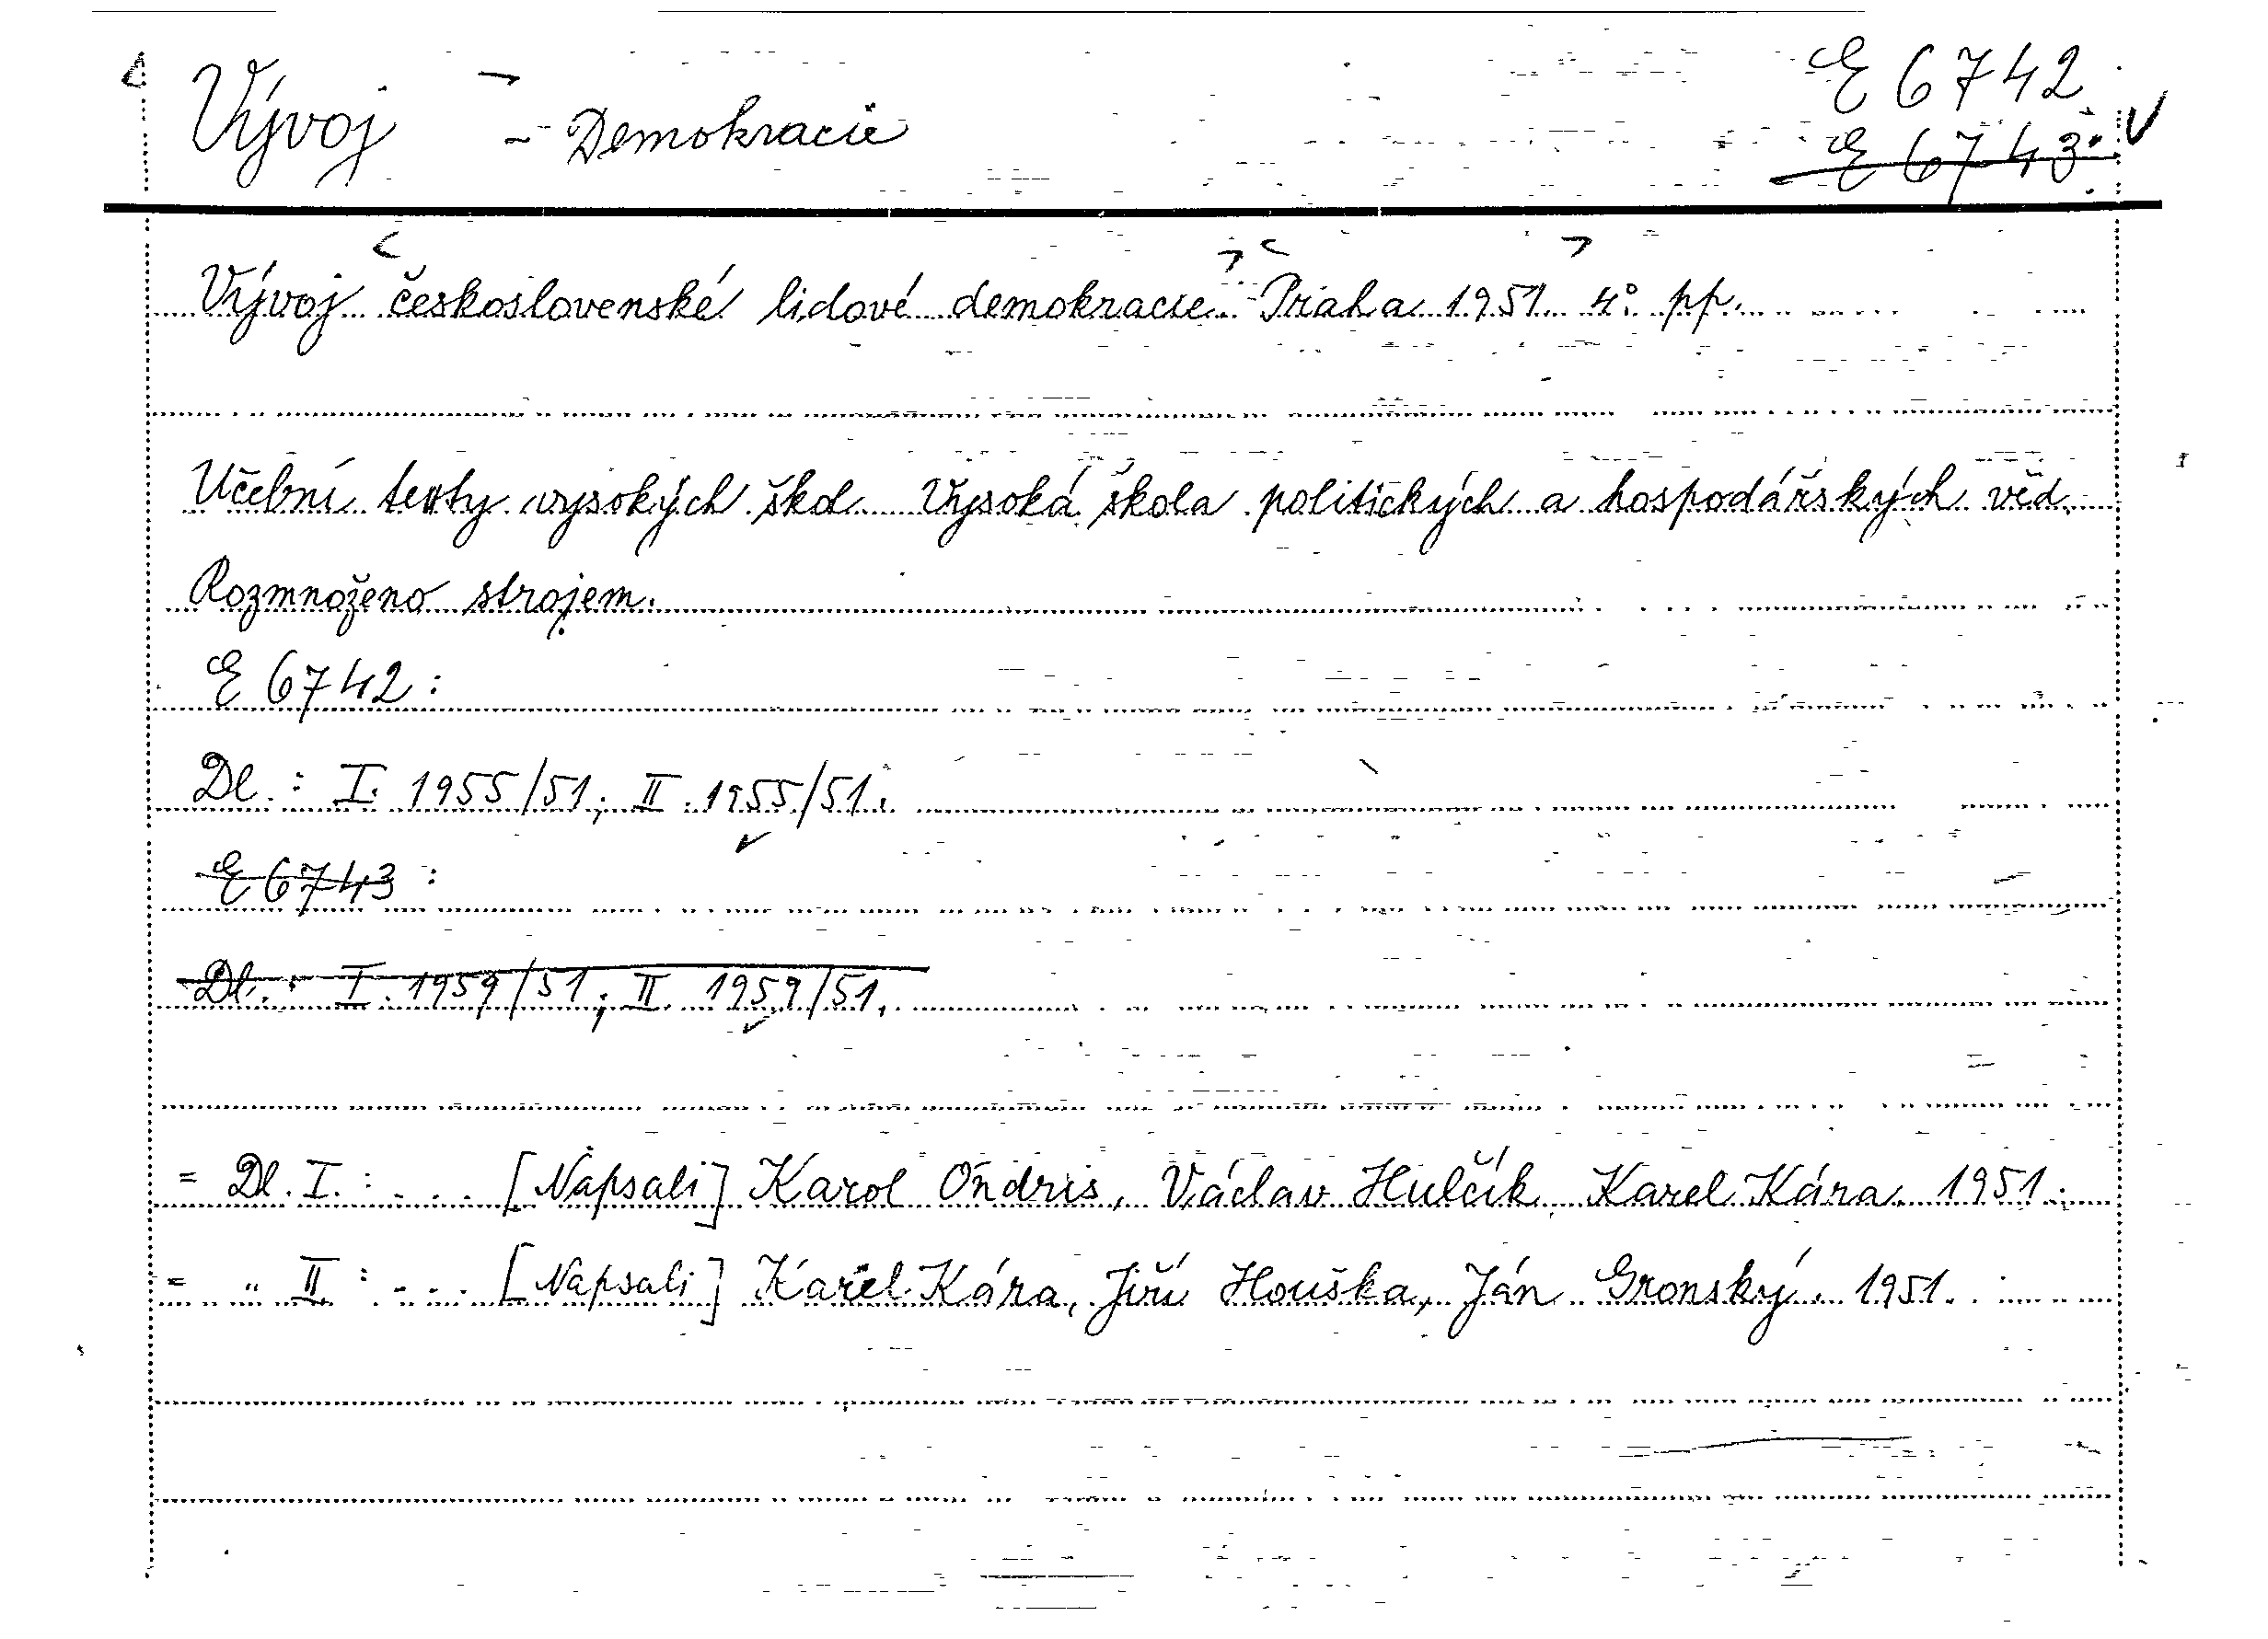 Vývoj - Demokracie E 6742
E 6743
Vývoj československé lidové demokracie. Praha 1951. 4° pp.
Učební texty vysokých škol. Vysoká škola politických a hospodářských věd.
Rozmnoženo strojem.
E 6742:
Dl.: I. 1955/51; II. 1955/51.
E 6743:
Dl.: I. 1959/51; II. 1959/51.
= Dl. I.: ... [Napsali] Karol Ondris, Václav Hulčík, Karel Kára. 1951.
= " II: ... [Napsali] Karel Kára, Jiří Houška, Ján Gronský. 1951.